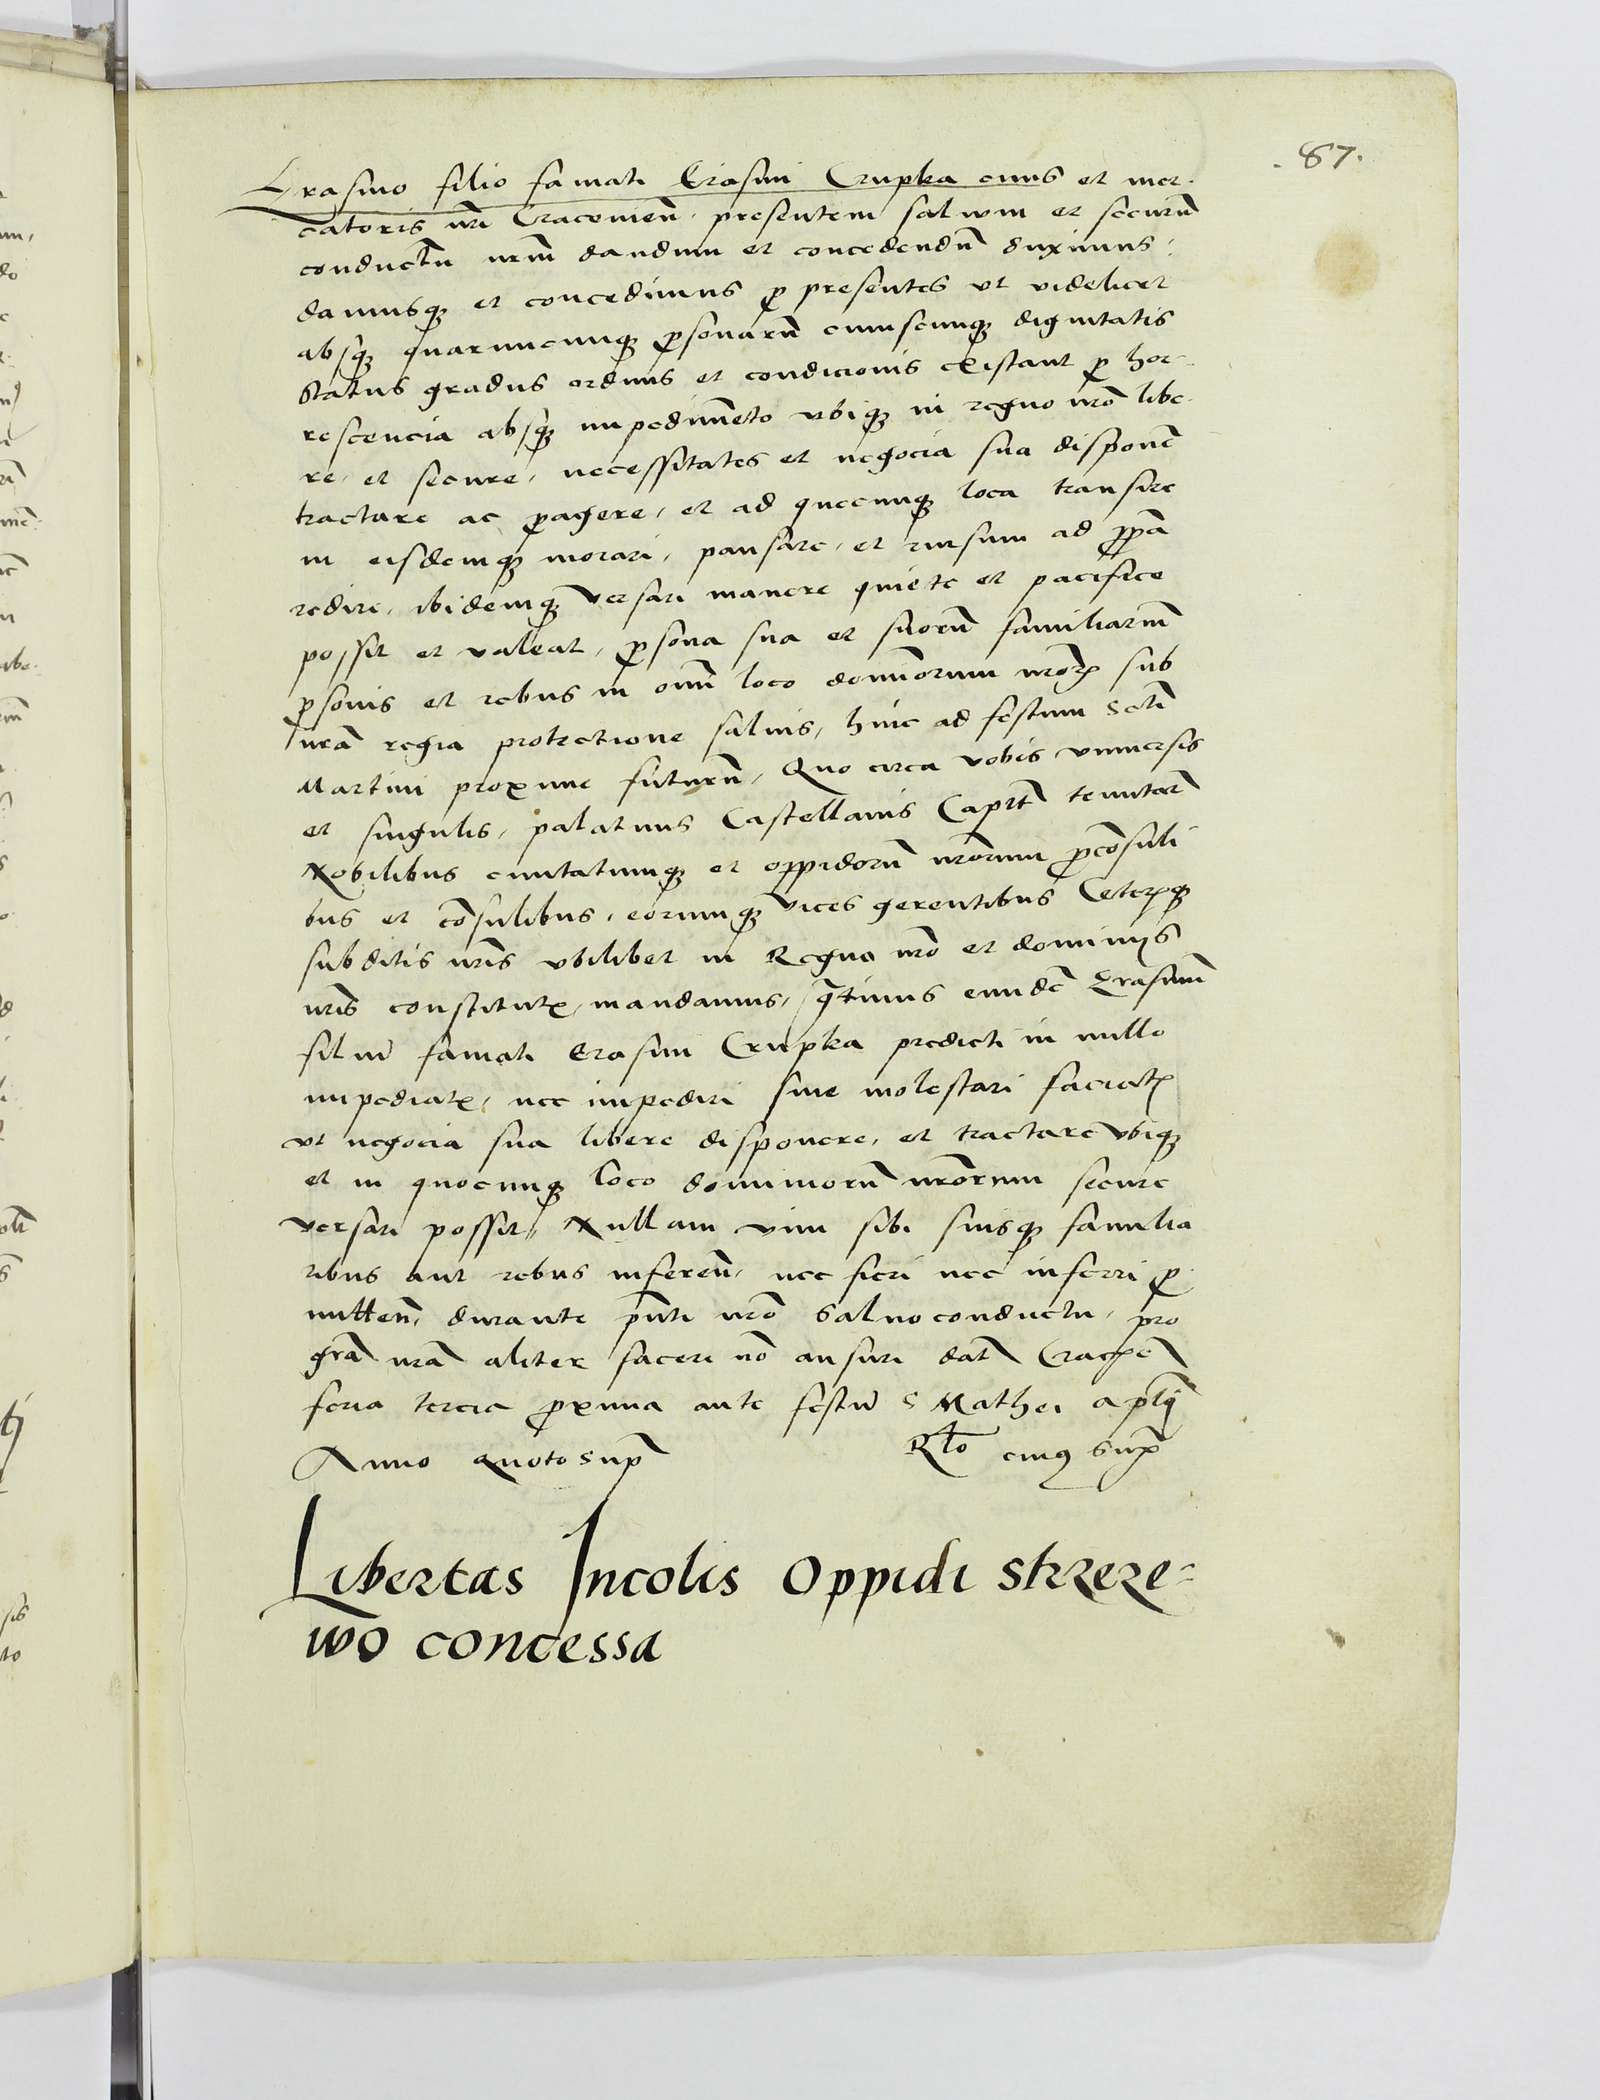 .87.
Erasmo filio famati Erasmi Crupka civis et mer-
catoris nri Cracovien. presentem salvum et securu
conductu nrm dandum et concedendu duximus.
damusq et concedimus p presentes ut videlicet
absq quarumcumq psonaru cuiuscumq dignitatis
status gradus ordinis et condicionis existant p hor-
rescencia absq impedimeto ubiq in regno nro libe-
re, et secure, necessitates et negocia sua disponere
tractare ac pagere, et ad quecumq loca transire
in eisdemq morari, pausare, et rursum ad ppa
redire, ibidemq versari manere quiete et pacifice
possit et valeat, psona sua et suoru familiarium
psonis et rebus in omi loco dominiorum nror sub
nra regia protectione salvis, hinc ad festum scti
Martini proxime futuru, Quo circa vobis universis
et singulis, palatinis Castellanis Capit tenutar
Nobilibus civitatumq et oppidoru nrorum pconsuli
bus et cosulibus, eorumq vices gerentibus Ceterisq
subditis nris ubilibet in Regno nro et dominijs
nris constitutis, mandamus, qtinus eunde Erasmum
filiu famati Erasmi Crupka predicti in nullo
impediatis, nec impediri sive molestari faciatis
ut negocia sua libere disponere, et tractare ubiq
et in quocumq loco dominioru nrorum secure
versari possit, Nullam vim sibi suisq familia
ribus aut rebus inferen, nec fieri nec inferri p
mitten, durante pnti nro salvoconductu, pro
gra nra aliter facere no ausuri dat Cracovie
feria tercia pxima ante festu s Mathei apli
Anno quoto sup Rlo eius sup
Libertas Incolis Oppidi Strzeze=
wo concessa